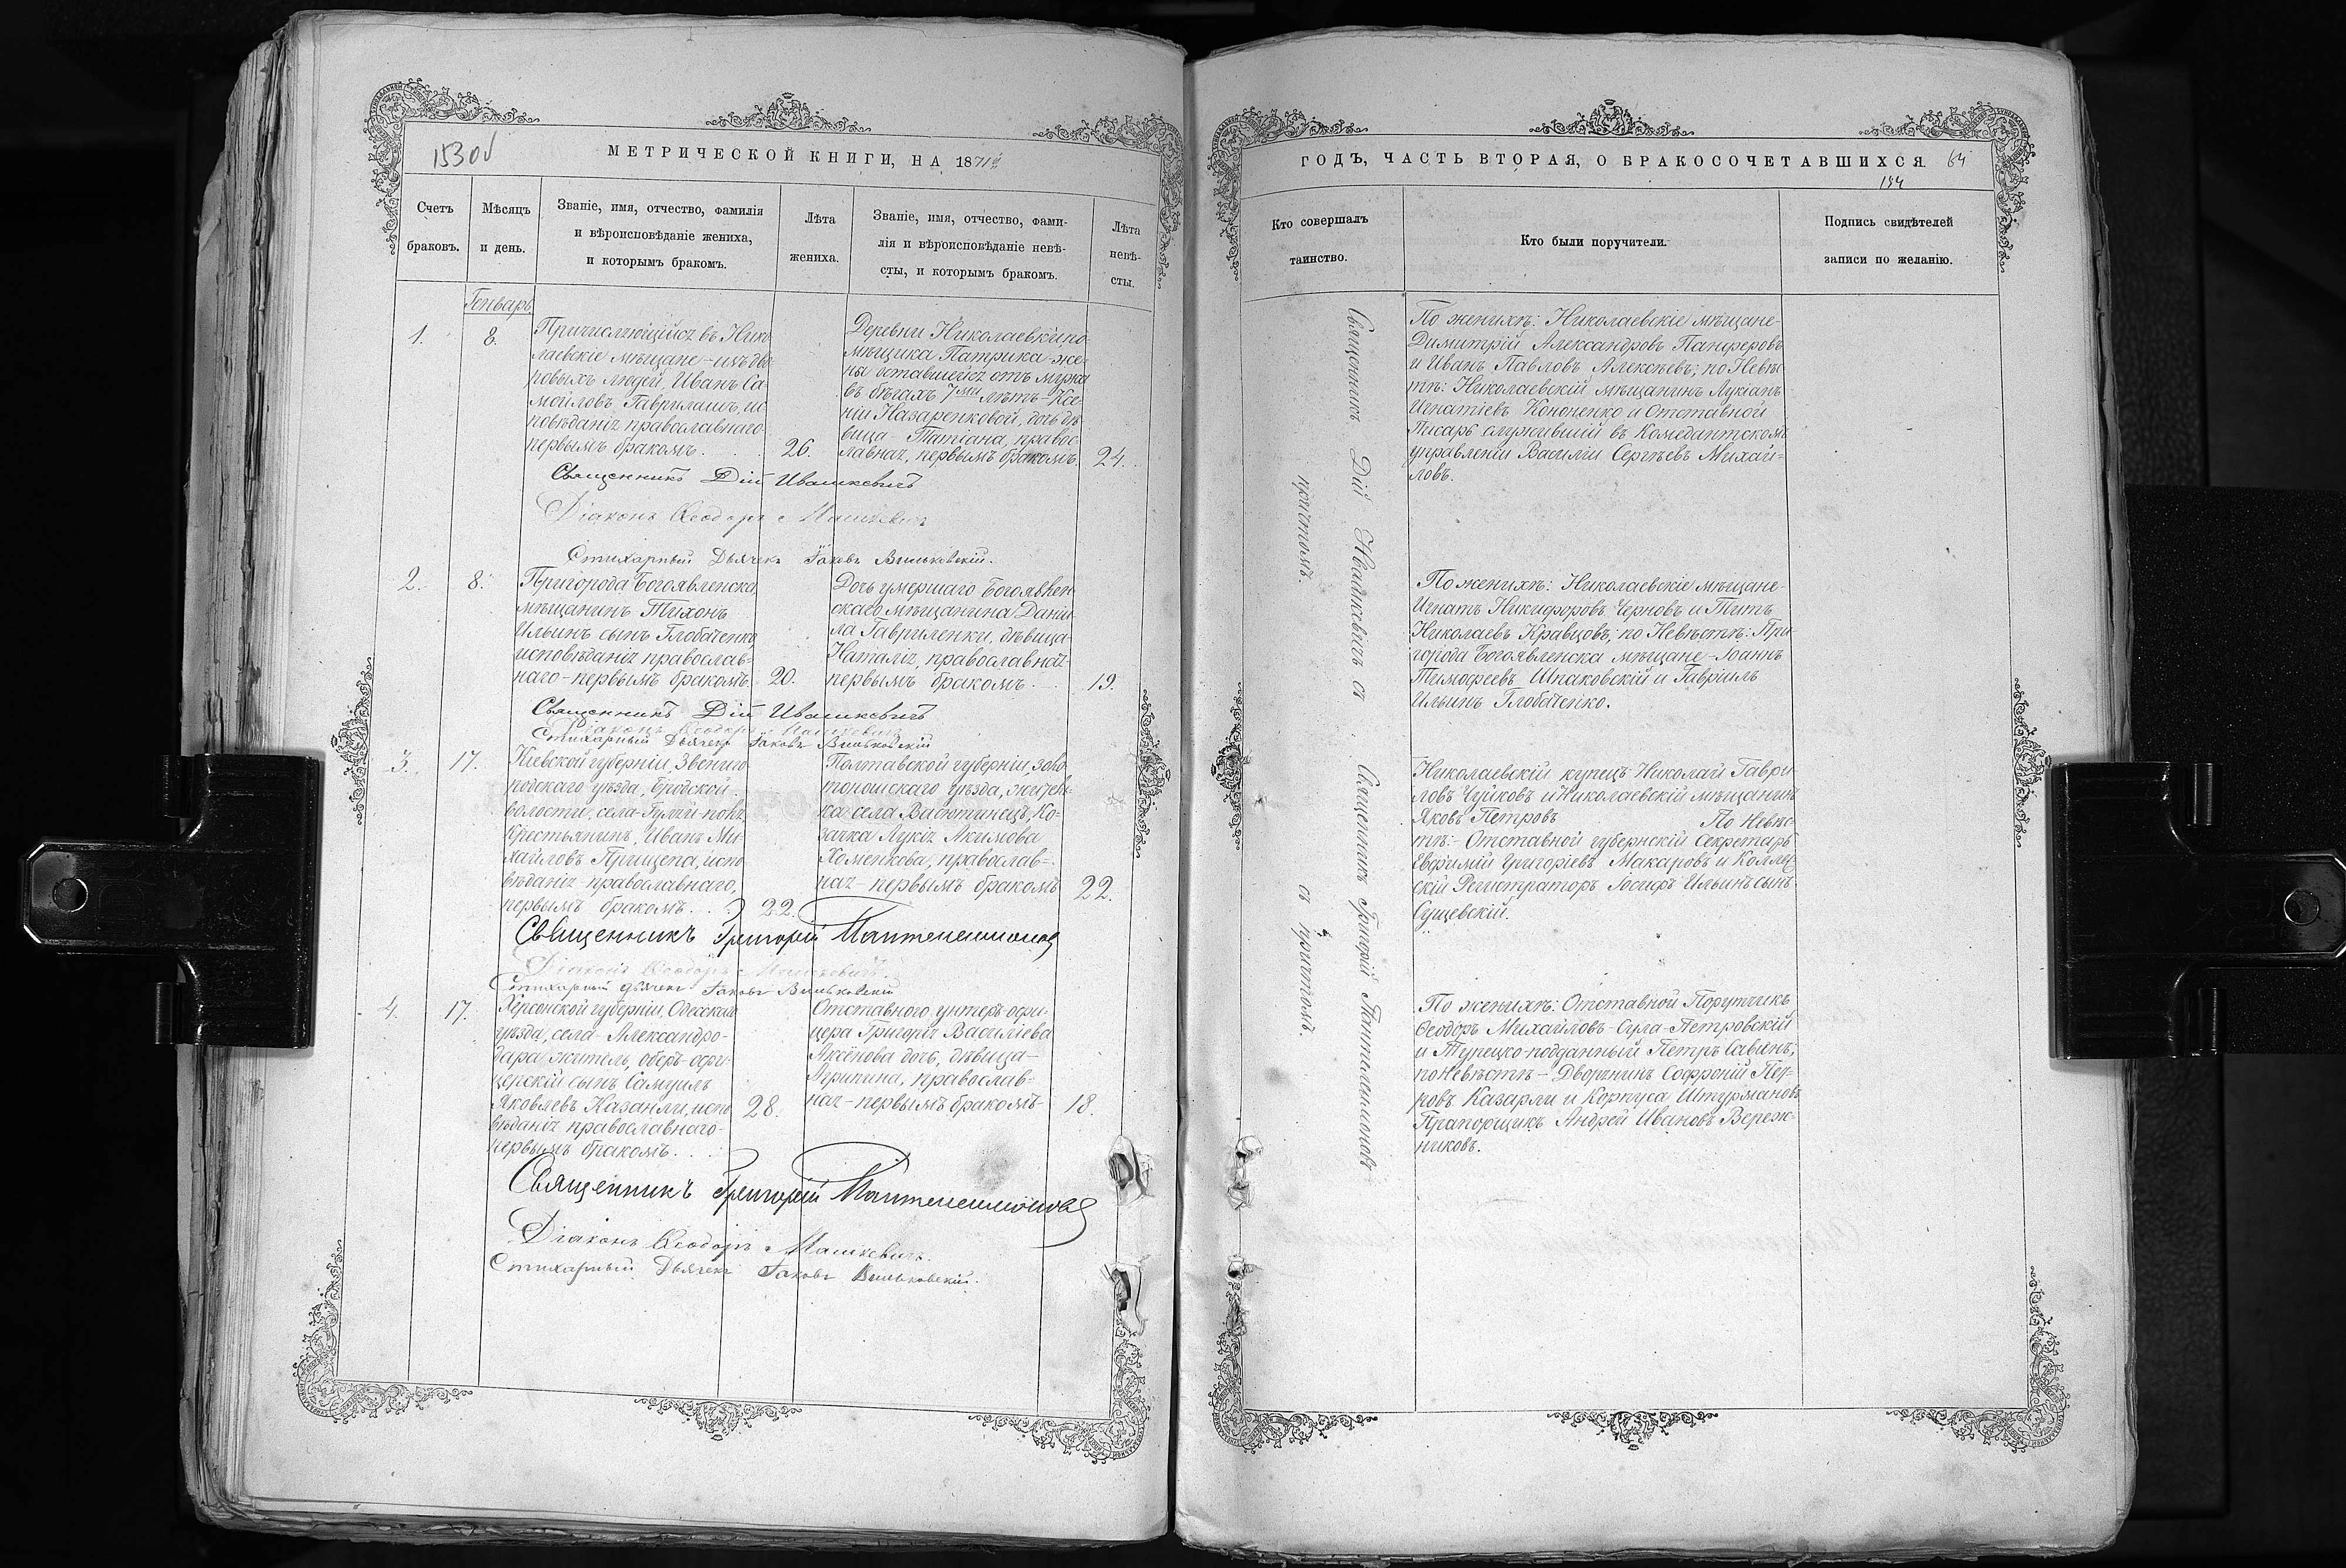 153об
МЕТРИЧЕСКОЙ КНИГИ, НА 1871й
Счетъ
браковъ.
Мѣсяцъ
и день.
Званіе, имя, отчество, фамилія
и вѣроисповѣданіе жениха,
и которымъ бракомъ.
Лѣта
жениха.
Званіе, имя, отчество, фами-
лія и вѣроисповѣданіе невѣ-
сты, и которымъ бракомъ.
Лѣта
невѣ-
сты.
Генварь
1.
8.
Причисляющійся въ Нико
лаевскіе мѣщане-изъ дво
ровыхъ людей, Иванъ Са
мойловъ Гаврилашъ, ис
повѣданія православнаго
первымъ бракомъ.
26.
Деревни Николаевки по
мѣщика Патрика же-
ны оставшейся отъ мужа
въ бѣгахъ 7ми лѣтъ-Ксе-
ніи Назаренковой, дочь дѣ
вица Татіана, правос-
лавная, первымъ бракомъ.
24.
Священникъ Дій Ивашкевичъ
Діаконъ Ѳеодоръ Машкевичъ
Стихарный Дьячекъ Іаковъ Вильковскій.
2.
8.
Пригорода Богоявленска,
мѣщанинъ Тихонъ
Ильинъ сынъ Глобаченко,
исповѣданія православ-
наго-первымъ бракомъ.
20.
Дочь умершаго Богоявлен
скаго мѣщанина Дани-
ла Гавриленки, дѣвица
Наталія, православная
первымъ бракомъ.
19.
Священникъ Дій Ивашкевичъ
Діаконъ Ѳеодоръ Машкевичъ
Стихарный Дьячекъ Іаковъ Вильковскій
3.
17.
Кіевской губерніи, Звениго
родскаго уѣзда,
волости, села
Крестьянинъ, Иванъ Ми-
хайловъ Прищепа, испо
вѣданія православнаго,
первымъ бракомъ.
22.
Полтавской губерніи, золо
тоношскаго уѣзда, жител-
ка села Васютинецъ, Ко-
зачка Лукія Акимова
Хоменкова, православ-
ная-первымъ бракомъ
22.
Священникъ Григорій Пантелеимоновъ
Діаконъ Ѳеодоръ Машкевичъ.
Стихарный дьячекъ Іаковъ Вильковскій
4.
17.
Херсонской губерніи, Одесскаго
уѣзда, села Александро-
дара житель, оберъ-офи-
церскій сынъ Самуилъ
Яковлевъ Казанли, испо
вѣданія православнаго-
первымъ бракомъ.
28.
Отставного унтеръ-офи-
цера Григорія Василіева
Аксенова дочь, дѣвица-
Агрипина, православ-
ная-первымъ бракомъ-
18.
Священникъ Григорій Пантелеимоновъ
Діаконъ Ѳеодоръ Машкевичъ.
Стихарный Дьячекъ Іаковъ Вильковскій.
ГОДЪ, ЧАСТЬ ВТОРАЯ, О БРАКОСОЧЕТАВШИХСЯ.
64
154
Кто совершалъ
таинство.
Кто были поручители.
Подпись свидѣтелей
записи по желанію.
Священникъ Дій Ивашкевичъ съ
причтомъ.
Священникъ Григорій Пантелеимоновъ
съ причтомъ.
По женихѣ: Николаевскіе мѣщане-
Димитрій Александровъ Панферовъ
и Иванъ Павловъ Алексѣевъ; по Невѣс
тѣ: Николаевскій мѣщанинъ Лукіанъ
Игнатіевъ Кононенко и Отставной
Писарь служившій въ Комедантскомъ
управленіи Василій Сергѣевъ Михай-
ловъ.
По женихѣ: Николаевскіе мѣщане-
Игнатъ Никифоровъ Черновъ и Титъ
Николаевъ Кравцовъ; по Невѣстѣ: При
города Богоявленска мѣщане-Іоаннъ
Тимофеевъ Шпаковскій и Гавріилъ
Ильинъ Глобаченко.
Николаевскій купецъ Николай Гаври
ловъ Чуйковъ и Николаевскій мѣщанинъ
Яковъ Петровъ По Невѣс-
тѣ:-Отставной губернскій Секретарь
Евфимій Григоріевъ Макаровъ и Коллеж
скій Регистраторъ Іосифъ Ильинъ сынъ
Сущевскій.
По женихѣ: Отставной Порутчикъ
Ѳеодоръ Михайловъ Сула-Петровскій
и Турецко-подданный Петръ Савинъ;
по Невѣстѣ-Дворянинъ Софроній Пет-
ровъ Казарли и Корпуса Штурмановъ
Прапорщикъ Андрей Ивановъ Вереж-
никовъ.